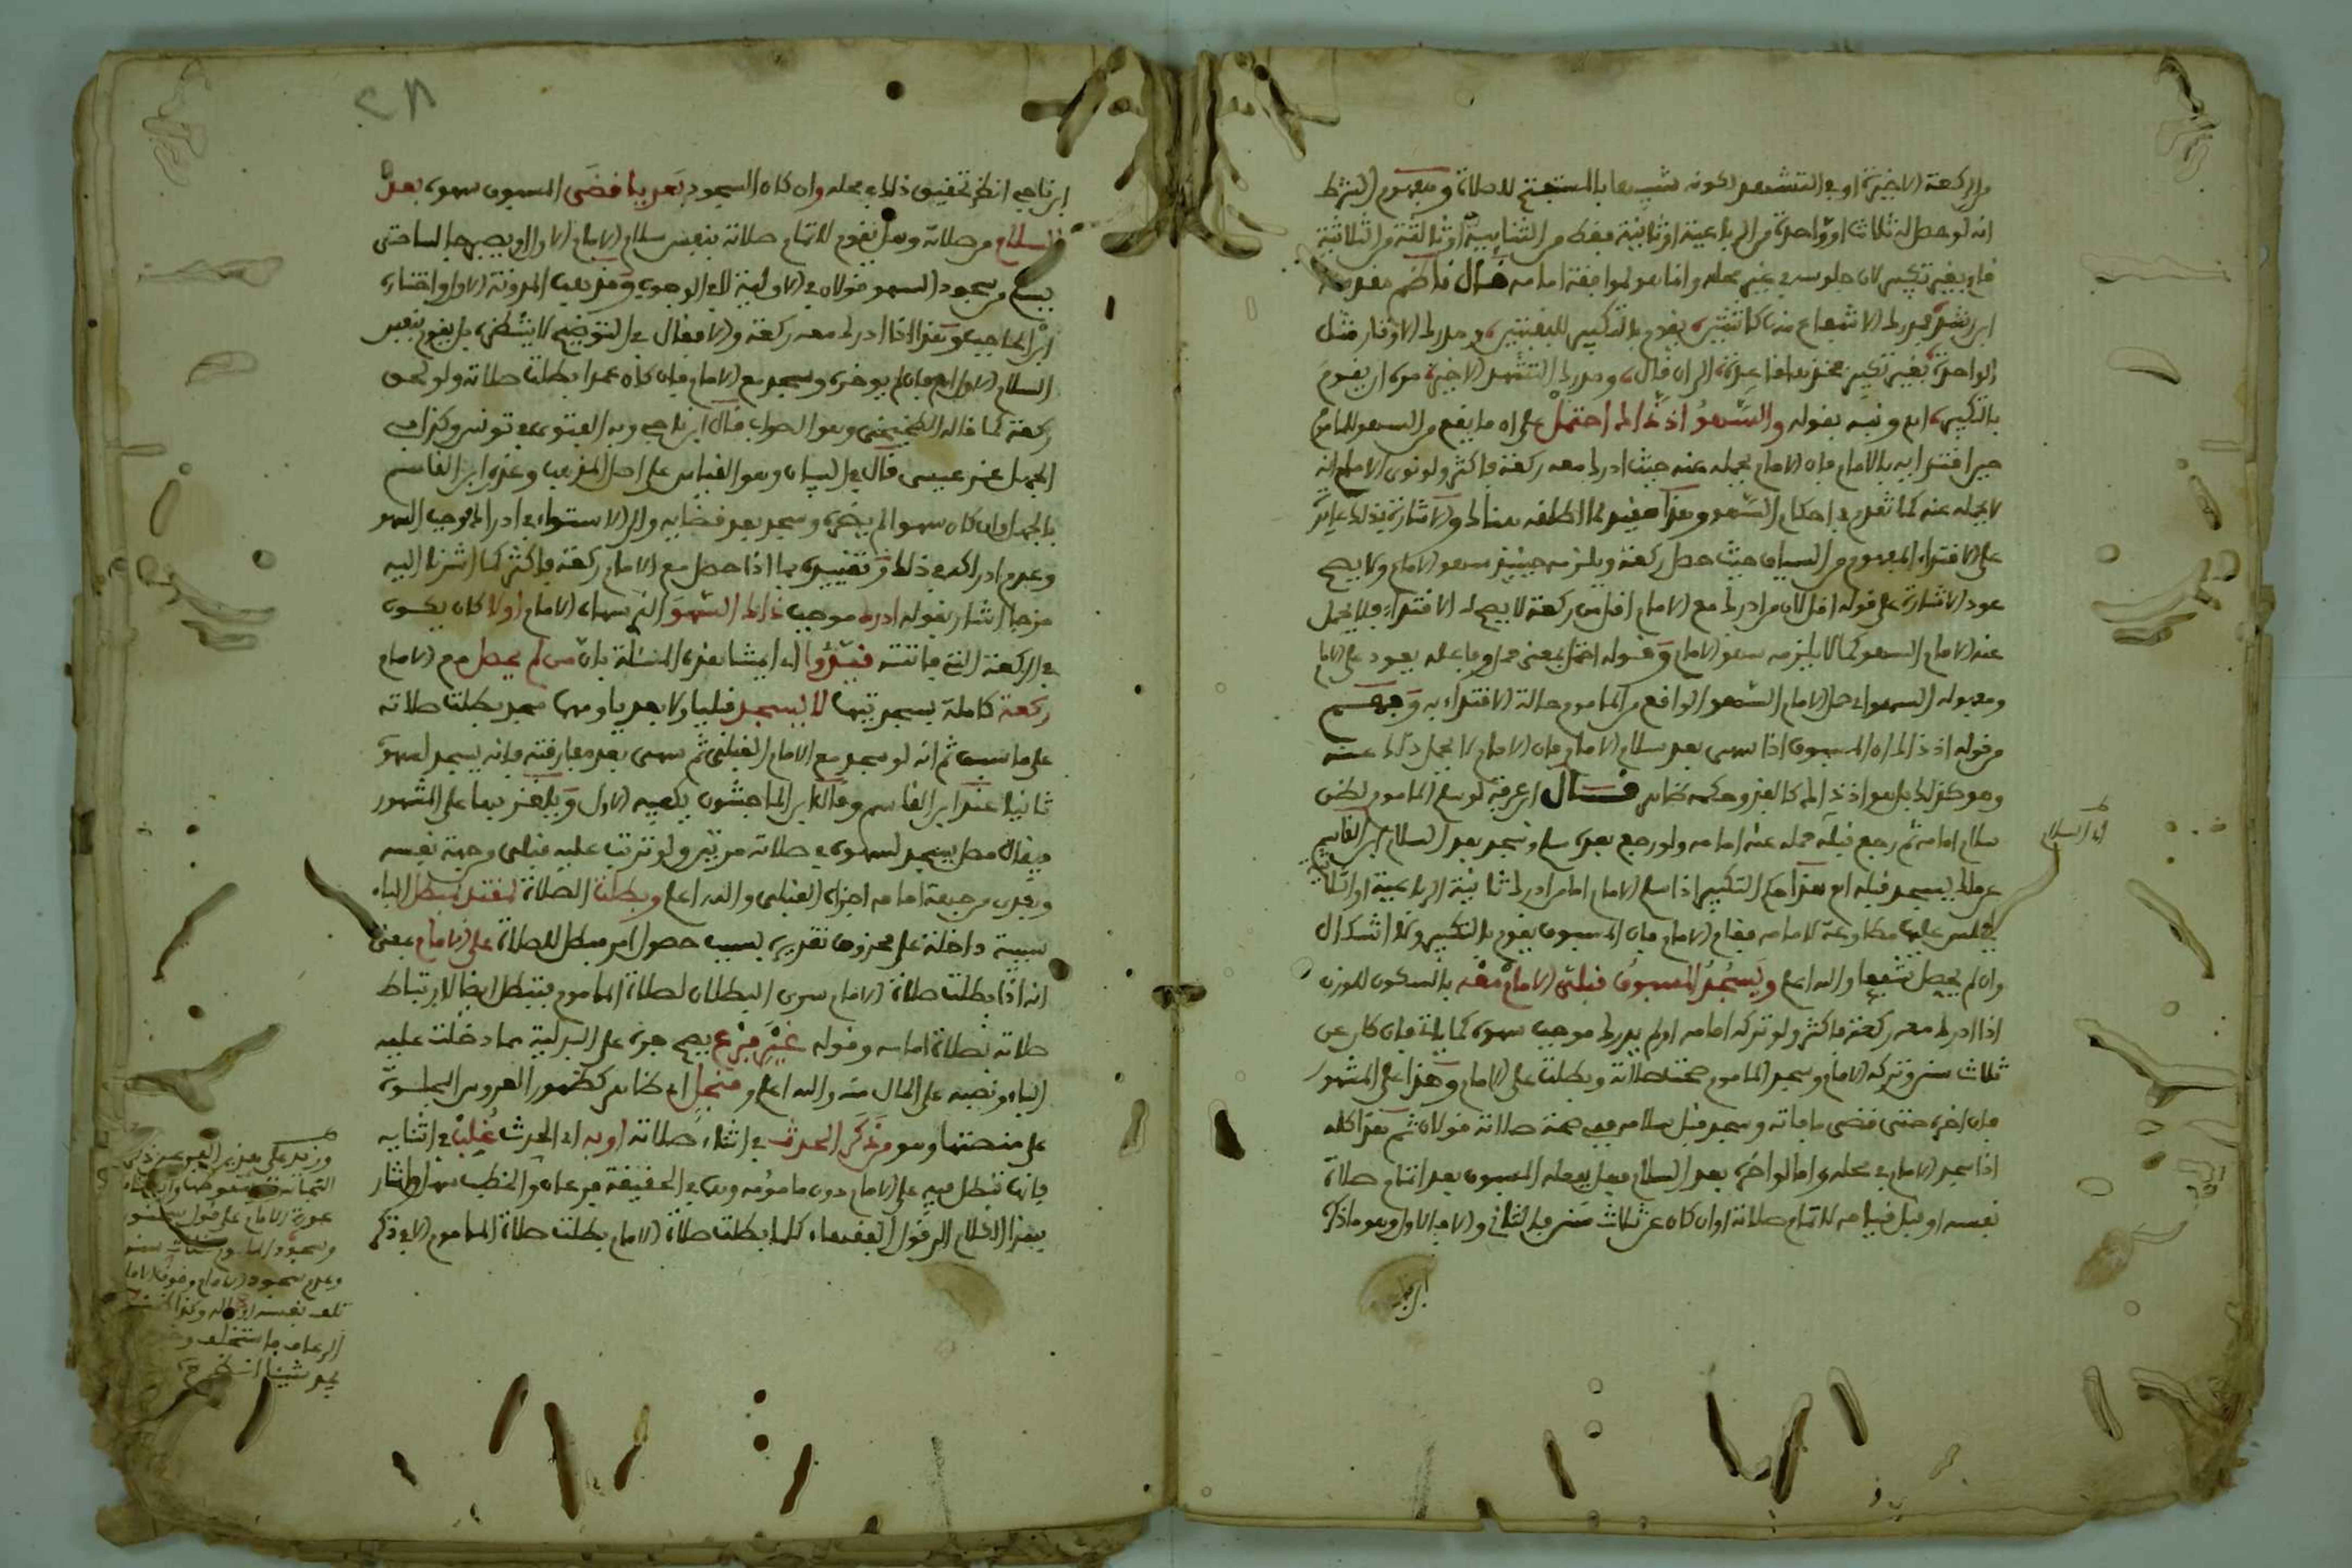 من الركعة الاخيرة او في التشهد لكونه شبيها بالمستفتح للصلاة ومفهوم الشرط
انه لو حصل له ثلاث او واحدة من الرباعية او ثانية فقط من الثنائية او ثالثة من الثلاثية
قام بغير تكبير لان جلوسه في غير محله وانما هو لموافقة امامه قال ناظم مقدمة
ابن رشد فمدرك الاشفاع منها كاثنتين يقوم بالتكبير للبقيتين ومدرك الاوتار مثل
الواحدة بغير تكبير فخذها فاعدة الى ان قال ومدرك التشهد الاخير من ان يقوم
بالتكبير اهـ ونبه بقوله والسهو اذ ذاك احتمل على ان ما يقع من السهو للماموم
حين اقتدائه بالامام فان الامام يحمله عنه حيث ادرك معه ركعة فاكثر ولو نوى الامام انه
لا يحمله عنه كما تقدم في احكام السهو وهذا مقيد لما اطلقه هناك والاشارة بذلك عائد
على الاقتداء المفهوم من السياق حيث حصل ركعة ويلزمه حينئذ سهو الامام ولا يصح
عود الاشارة على قوله اقل لان من ادرك مع الامام اقل من ركعة لا يصح له الاقتداء فلا يحمل
عنه الامام السهو كما لا يلزمه سهو الامام وقوله احتمل بمعنى حمل وفاعله يعود على الامام
ومفعوله السهو اي حمل الامام السهو الواقع من الماموم حالة الاقتداء به وفهم
من قوله اذ ذاك ان المسبوق اذا سهى بعد سلام الامام فان الامام لا يحمل ذلك عنه
وهو كذلك بل هو اذ ذاك كالفذ وحكمه ظاهر قال ابن عرفة لو سلم الماموم لظن
سلام امامه ثم رجع قبله حمله عنه امامه ولو رجع بعده سلم وسجد بعد السلام ابن القاسم
اي السلام
عن مالك يسجد قبله اهـ هذا حكم التكبير اذا سلم الامام اما من ادرك ثانية الرباعية او الثلاثية
يجلس عليها مطاوعة لامامه فقام الامام فان المسبوق يقوم بالتكبير ولا اشكال
وان لم يحصل شفعا والله اعلم ويسجد المسبوق قبلي الامام معه بالسكون للوزن
اذا ادرك معه ركعة فاكثر ولو تركه امامه او لم يدرك موجب سهوه كما ياتي فان كان عن
ثلاث سنن وتركه الامام وسجد الماموم صحت صلاته وبطلت على الامام وهذا على المشهور
فان اخره حتى قضى ما فاته وسجد قبل سلامه ففي صحة صلاته قولان ثم هذا كله
اذا سجد الامام في محله واما لو اخره بعد السلام فهل يفعله المسبوق بعد اتمام صلاة
نفسه او قبل قيامه لاتمام صلاته او ان كان عن ثلاث سنن فبالثاني والا فبالاول وهو ما ذكره
ابن ناجي
ابن ناجي انظر تحقيق ذلك في محله وان كان السجود بعديا قضى المسبوق سهوه بعد
السلام من صلاته وهل يقوم لاتمام صلاته بنفس سلام الامام الاول او يصبر جالسا حتى
يسلم من سجود السهو قولان في الاولوية لا في الوجوب ومذهب المدونة الاول واختاره
ابن الحاجب وهذا اذا ادرك معه ركعة والا فقال في التوضيح لا ينتظره بل يقوم بنفس
السلام الاول اهـ فان لم يوخره وسجد مع الامام فان كان عمدا بطلت صلاته ولو لحق
ركعة كما قاله اللخمي وهو الصواب قال ابن ناجي وبه الفتوى في تونس وكذا في
الجهل عند عيسى قال في البيان وهو القياس على اصل المذهب وعذره ابن القاسم
بالجهل وان كان سهوا لم يضره وسجد بعد قضائه والى الاستواء في ادراك موجب السهو
وعدم ادراكه في ذلك وتقييده بما اذا حصل مع الامام ركعة فاكثر كما اشرنا اليه
مزجا اشار بقوله ادرك موجب ذاك السهو الذي سهاه الامام اولا كان يكون
في الركعة التي فاتته قيدوا اي ايمتنا هذه المسئلة بان من لم يحصل مع الامام
ركعة كاملة بسجدتيها لا يسجد قبليا ولا بعديا ومهما سجد بطلت صلاته
على ما سبق ثم انه لو سجد مع الامام القبلي ثم سهى بعد مفارقته فانه يسجد لسهوه
ثانيا عند ابن القاسم وقال ابن الماجشون يكفيه الاول ويلغز بها على المشهور
فيقال مصل يسجد لسهوه في صلاته مرتين ولو ترتب عليه قبلي من جهة نفسه
وبعدي من جهة امامه اجزاه القبلي والله اعلم وبطلت الصلاة لمقتد بمبطل الباء
سببية داخلة على محذوف تقديره بسبب حصول امر مبطل للصلاة على الامام بمعنى
انه اذا بطلت صلاة الامام سرى البطلان لصلاة الماموم فتبطل ايضا لارتباط
صلاته بصلاة امامه وقوله غير فرع يصح جره على البدلية مما دخلت عليه
الباء ونصبه على الحال منه والله اعلم ومنجل اي ظاهر كظهور العروس المجلوة
على منصتها وهو من ذكر الحدث في اثناء صلاته او به اي الحدث غلب في اثنائه
فانها تبطل فيه على الامام دون مامومه وهي في الحقيقة فرعان والخطب سهل واشار
بهذا الكلام الى قول الفقهاء كلما بطلت صلاة الامام بطلت صلاة الماموم الا في ذكر
وزيد على هذين الفرعين ذكر
عورة الامام على قول سحنون
وسجود الماموم لثلاث سنن
وعدم سجود الامام وخوف الامام
تلف نفسه او ماله وكذا
الرعاف فاستخلف